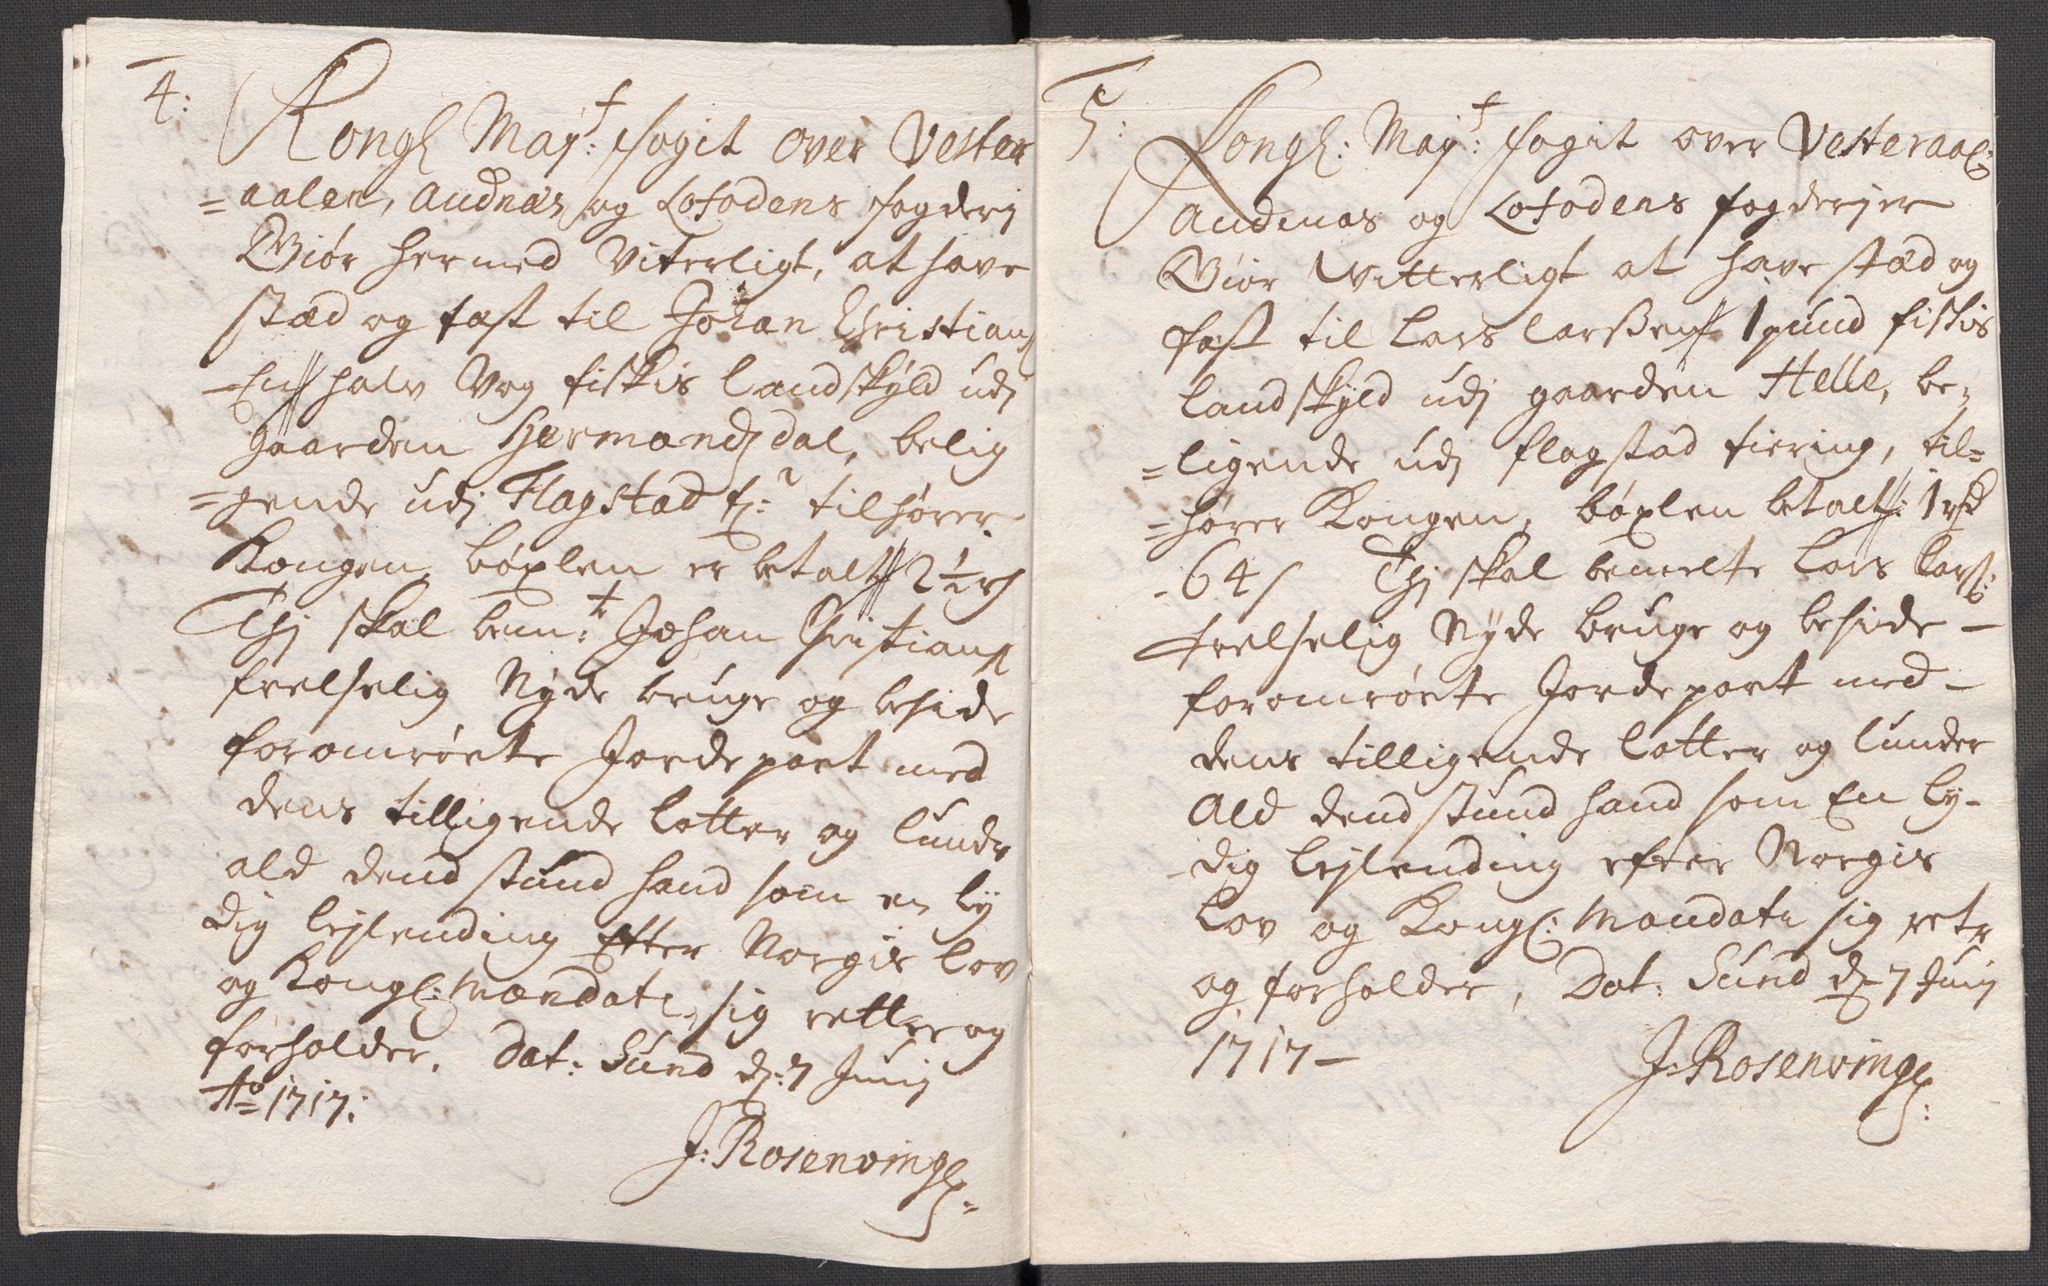 4:
Kongl May:t fogit over Vester
=aalen, Andnæs og Lofodens fogderj
Giør hermed Viterligt, at have
stæd og fæst til Johan Christians:
En halv Vog fiskis landskÿld udj
gaarden Hermandsdal, belig
=gende udj Flagstad f: tilhører
Kongen, bøxlen er betalt 2½ rd
Thj skal bem:te Johan Christians:
frelselig Nÿde bruge og beside
foromrørte Jorde part med
dens tilligende lotter og lunder
ald dend stund hand som en lÿ
dig lejlending Efter Norgis lov
og Kongl: Mandater, sig retter og
forholder. Dat: Sund d: 7 Junij
Ao 1717:
J: Rosenvinge:
5:
Kongl: May:t fogit over Vesteraal:
Andnæs og Lofodens fogderjer
Giør Vitterligt at have stæd og
fæst til Lars Larssen 1 pund fiskis
landskÿld udj gaarden Helle, be=
=ligende udj flagstad fiering, til=
=hører Kongen, bøxlen betalt: 1 rd
64 s Thj skal bemelte Lars Lars:
frelselig Nÿde bruge og beside
foromrørte Jorde part med
dens tilligende lotter og lunder
Ald dend stund hand som En lÿ-
dig lejlending efter Norgis
Lov og Kongl: Mandater sig retr
og forholder, Dat: Sund d: 7 Junij
1717
J: Rosenvinge: